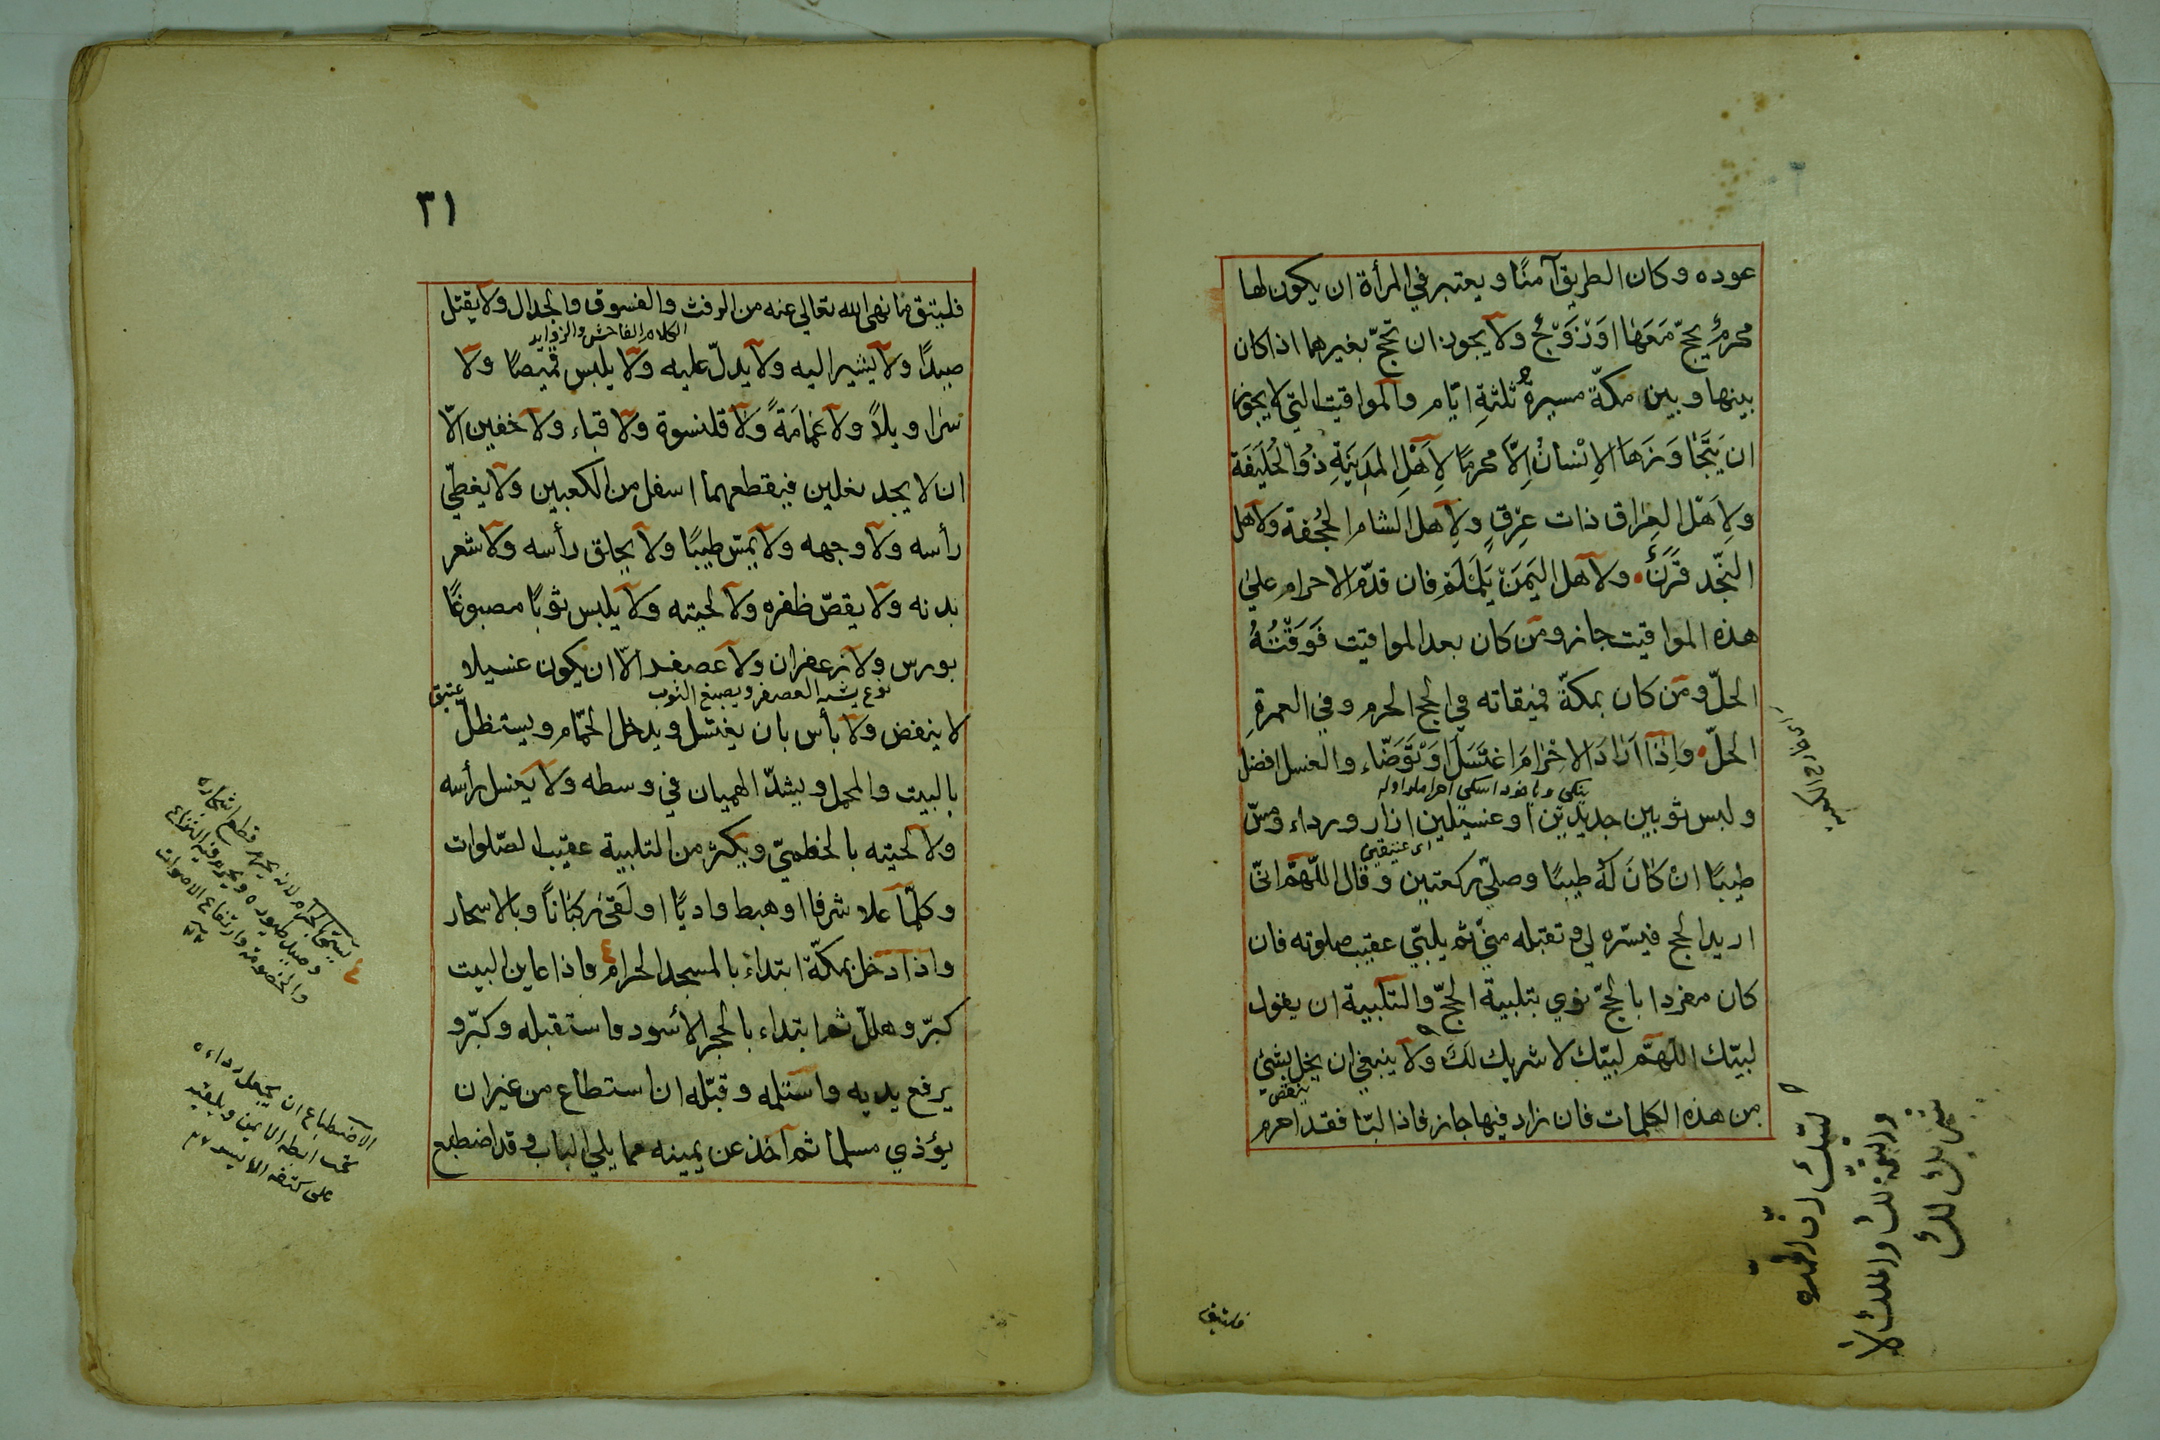 عوده وكان الطريق آمنًا ويعتبر في المرأة ان يكون لها
محرمٌ يحجّ مَعَهَا اَوْ زَوْجٌ ولا يجوز ان تحجّ بغيرهما اذا كان
بينها وبين مكّة مسيرة ثلثةِ ايّام والمواقيت التي لا يجوز
ان يَتَجَاوَزَهَا الاِنْسَانُ اِلاّ محرمًا لِاَهْلِ المَدِينَةِ ذُو الْحُلَيْفَة
ولِاَهْل العِرَاق ذات عِرْقٍ ولِاَهل الشام الجُحْفَة ولاهل
النّجد قَرَنٌ ولاهل اليَمَنْ يَلَمْلَمْ فان قدّم الاحرام علىٰ
هذه المواقيت جاز ومن كان بعد المواقيت فَوَقْتُهُ
الحلّ ومن كان بمكّة فميقاته في الحج الحرم وفي العمرةِ
الحلّ واِذَا اَرَادَ الاِحْرَامَ اغْتَسَلَ اَوْ تَوَضَّاء والغسل افضل
ولبس ثوبين جديدين او غسيلين ازار ورداء ومسّ
اى عتيقين
طيبًا انْ كَانَ لَهُ طيبًا وصلّى ركعتين وقال اللّهمّ انّى
اريد الحج فيسّره لى وتقبله منّى ثم يلبّى عقيب صلوته فان
كان مفردا بالحجّ نوي بتلبية الحجّ والتلبية ان يقول
لبيّك اللّهمّ لبيّك لا شريك لَكَ ولا ينبغى ان يخل بشئ
ينقص
من هذه الكلمات فان زاد فيها جاز فاذا لبّا فقد احرم
لبيّك انّ الحمد
والنّعمة لك والملك لا
شريك لك
فليتق
٣١
فليتّق ما نهى الله تعالى عنه من الرفث والفسوق والجدال ولا يقتل
الكلام الفاحش
صيدًا ولا يشير اليه ولا يدلّ عليه ولا يلبس قميصًا ولا
سراويلاً ولا عِمَامَةً ولا قلنسوة ولا قباء ولا خفين الاّ
ان لا يجد نعلين فيقطعهما اسفل من الكعبين ولا يغطّي
رأسه ولا وجهه ولا يمسّ طيبًا ولا يحلق رأسه ولا شعر
بدنه ولا يقصّ ظفره ولا لحيته ولا يلبس ثوبًا مصبوغًا
بورس ولا زعفران ولا عصفد الاّ ان يكون غسيلا و
نوع يشبه العصفر ويصبغ الثوب
عتيق
لا ينفض ولا بأس بان يغتسل ويدخل الحمّام ويستظلّ
بالبيت والمحمل ويشدّ الهميان في وسطه ولا يغسل رأسه
ولا لحيته بالخطميّ ويكثر من التلبية عقيب الصّلوات
وكلّما علا شرفا او هبط واديًا او لَقِىَ رُكْبَاناً وبالاسحار
واذا دخل بمكّة ابتداء بالمسجد الحرام فاذا عاين البيت
كبّر وهلّل ثم ابتداء بالحجر الاسود فاستقبله وكبّر و
يرفع يديه واستلمه وقبّله ان استطاع من غير ان
يؤذي مسلما ثم اخذ عن يمينه مما يلي الباب وقد اضطبع
٤
وصيد طيوره ويحرم فيه النزاع
والخصومة وارتفاع الاصوات
الاضطباع ان يجعل رداءه
تحت ابطه الايمن ويلقيه
على كتفه الايسر